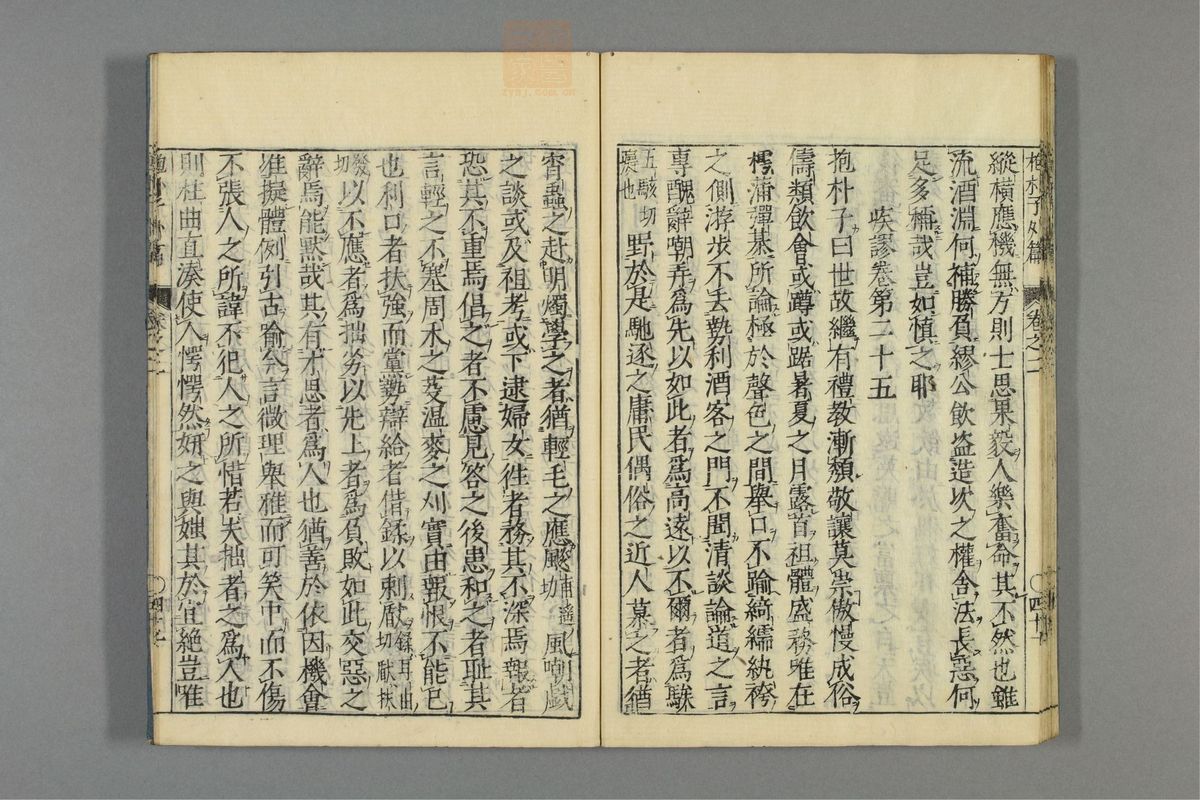 抱朴子外篇 卷之二 〇四十七
縱橫應機無方則士思果毅人樂奮命其不然也雖
流酒淵何補勝負繆公飲盗造次之權舍法長惡何
足多稱哉豈如慎之耶
疾謬卷第二十五
抱朴子曰世故繼有禮教漸頽敬讓莫崇傲慢成俗
儔類飲會或蹲或踞暑夏之月露首袒體盛務唯在
樗蒲彈棊所論極於聲色之間舉口不踰綺繻紈袴
之側游步不去勢利酒客之門不聞清談論道之言
專醜辭嘲弄爲先以如此者爲高遠以不爾者爲騃
五駭切
癡也 野於是馳逐之庸民偶俗之近人慕之者猶
宵蟲之赴明燭學之者猶輕毛之應颷 甫遥切 風嘲戯
之談或及祖考或下逮婦女往者務其不深焉報者
恐其不重焉倡之者不慮見答之後患和之者耻其
言輕之不塞周禾之芟温麥之刈實由報恨不能已
也利口者扶強而黨勢辯給者借鍒以刺瞂 鍒耳由切瞂扶
發切 以不應者爲拙劣以先止者爲負敗如此交惡之
辭焉能黙哉其有才思者爲人也猶善於依因機會
准擬體例引古喻今言微理舉雅而可笑中而不傷
不張人之所諱不犯人之所惜若夫拙者之爲人也
則枉曲直湊使人愕愕然妍之與媸其於宜絶豈唯